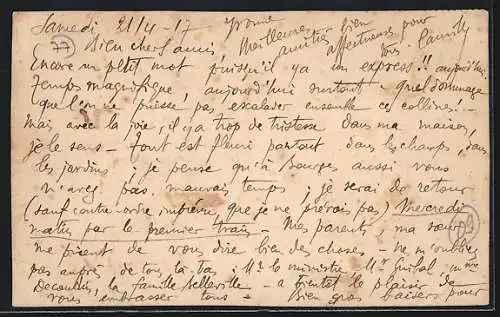 Samedi 21/4-17
77 Bien chers amis
Yvonne
Meilleures bien
amitiés affectueuses pour
tous. Camille
Encore un petit mot puisqu'il y a un express!! aujourd'hui
temps magnifique, aujourd'hui surtout : quel dommage
que l'on ne puisse pas escalader ensemble ces collines! –
Mais avec la joie, il y a trop de tristesse dans ma maison,
je le sens – tout est fleuri partout dans les champs, dans
les jardins ; je pense qu'à Bourges aussi vous
n'avez pas mauvais temps ; je serai de retour
(sauf contre-ordre imprévu que je ne prévois pas) Mercredi
matin par le premier train – Mes parents, ma sœur
me prient de vous dire bien des choses – ne m'oubliez
pas auprès de tous là-bas : Mr le ministre Mr
la famille Belleville – a bientôt le plaisir de
vous embrasser tous – Bien gros baisers pour